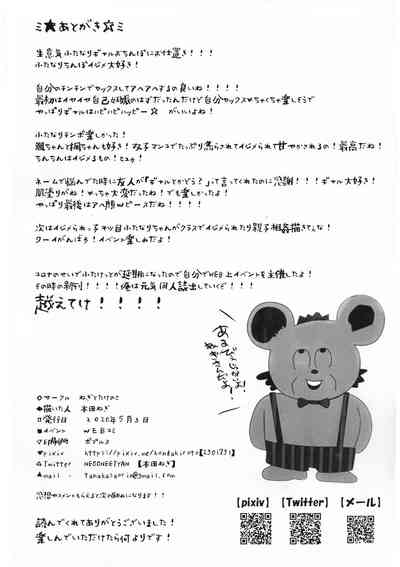 ミ★あとがき☆ミ
生意気ふたなりギャルおちんぽにお仕置き！！！
ふたなりちんぽイジメ大好き！
自分のチンチンでセックスしてアヘアヘするの良いね！！！！
最初はイヤイヤ自己のはずだったんだけど自分セックスめちゃくちゃ楽しそうで
やっぱりギャルはハピハピハッピー☆がいいよね！
ふたなりチンポ楽しかった！
颯ちゃんと楓ちゃんも好き！双子マンコでたっぷり焦らされてイジメられて甘やかされるの！最高だね！
ちんちんはイジメるもの！
ネームで悩んでた時に友人が「ギャルとかどう？」って言ってくれたのに感謝！！！ギャル大好き！
肌塗りがね！めっちゃ大変だったね！でも楽しかったよ！
やっぱり最後はアヘ顔Wピースだね！！！！
次はイジメられっ子ふたなりちゃんがクラスでイジメられたり親子相姦描きてぇな！
ワーイがんばろ！イベント楽しみだよ！
コロナのせいでふたけっとが延期になったので自分でWEB上イベントを主催したよ！
その時の新刊！！！！俺は元気 個人誌出していくぞ！！！
越えてけ！！！！
◎サークル ねぎとたけのこ
◆描いた人 本田ねぎ
□発行日 2020年5月3日
■イベント WEBコミ
▽印刷所 ポプルス
◆pixiv
Twitter 【本田ねぎ】
感想やコメントもらえると次の励みになります！！
読んでくれてありがとうございました！
楽しんでいただけたら何よりです！
【pixiv】 【Twitter】 【メール】